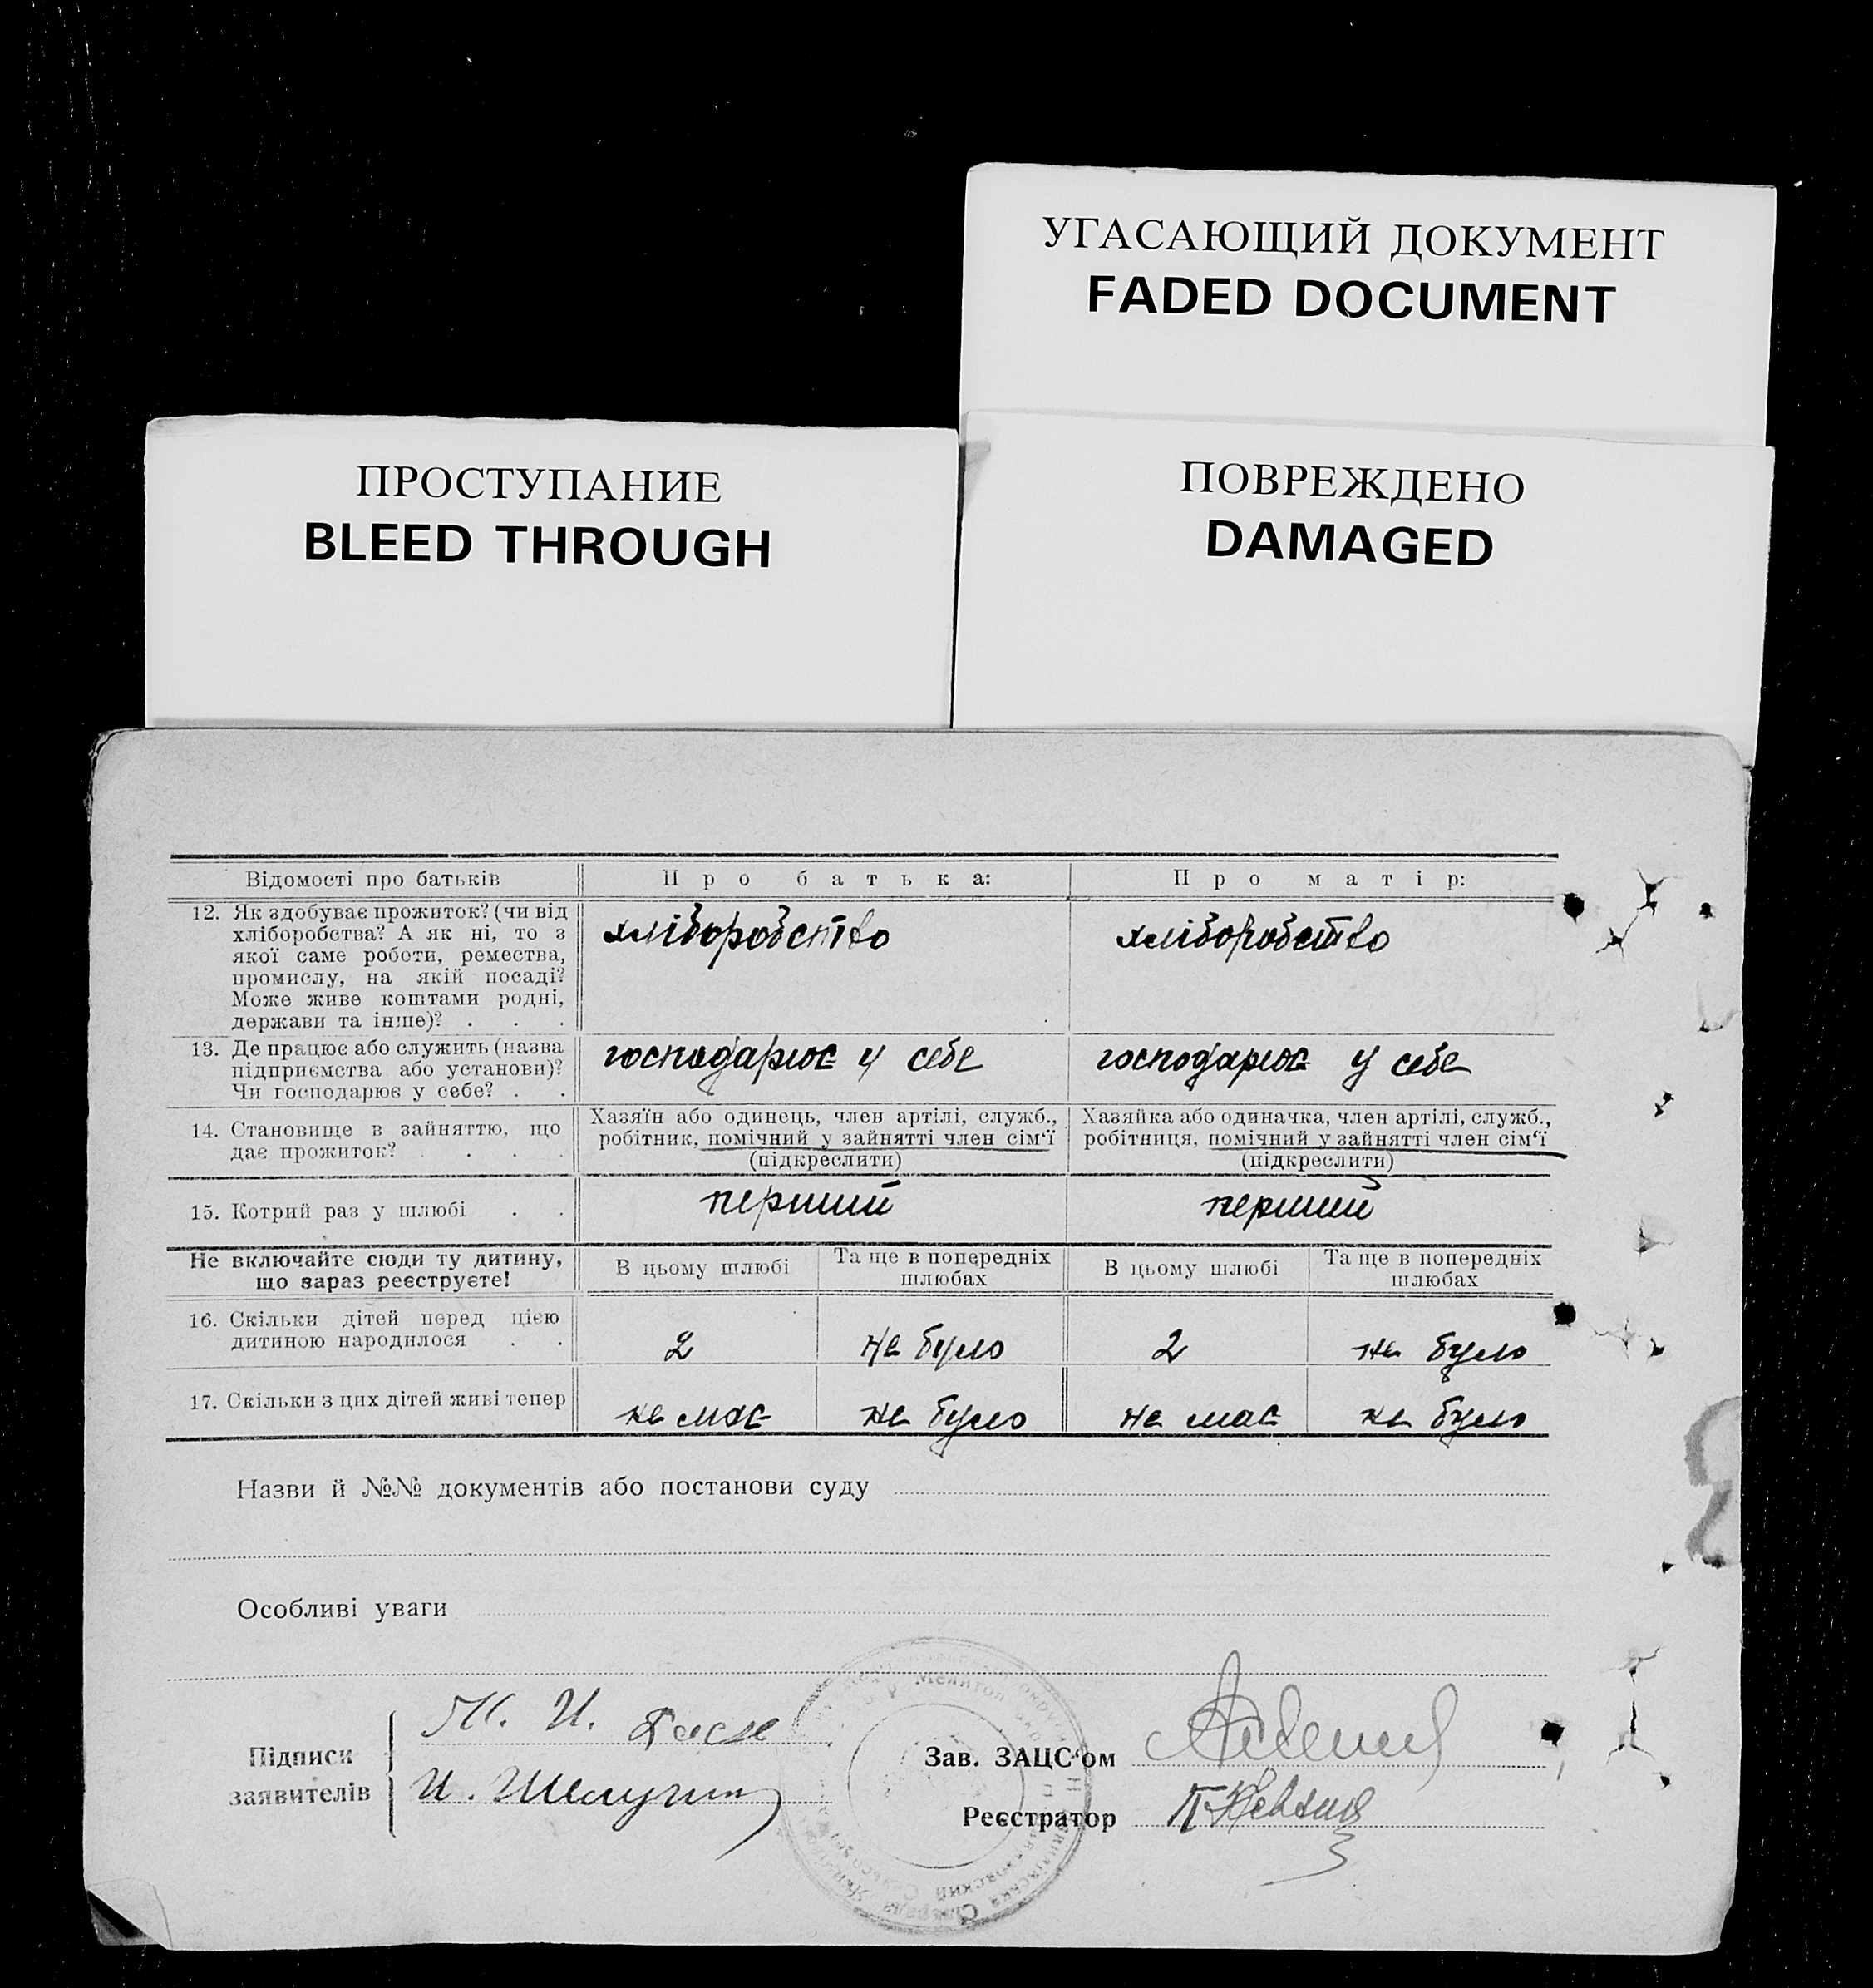 УГАСАЮЩИЙ ДОКУМЕНТ
FADED DOCUMENT
ПРОСТУПАНИЕ
BLEED THROUGH
ПОВРЕЖДЕНО
DAMAGED
Відомості про батьків
Про батька:
Про матір:
12. Як здобуває прожиток? (чи від
хліборобства? А як ні, то з
якої саме роботи, ремества,
промислу, на якій посаді?
Може живе коштами родні,
держави та інше)? . . .
хліборобство
хліборобство
13. Де працює або служить (назва
підприємства або установи)?
Чи господарює у себе? . .
господарює у себе
господарює у себе
14. Становище в зайняттю, що
дає прожиток? . . . .
Хазяїн або одинець, член артілі, служб.,
робітник, помічний у зайнятті член сім‘ї
(підкреслити)
Хазяйка або одиначка, член артілі, служб.,
робітниця, помічний у зайнятті член сім‘ї
(підкреслити)
15. Котрий раз у шлюбі . .
перший
перший
Не включайте сюди ту дитину,
що зараз реєструєте!
В цьому шлюбі
Та ще в попередніх
шлюбах
В цьому шлюбі
Та ще в попередніх
шлюбах
16. Скільки дітей перед цією
дитиною народилося . .
2
не було
2
не було
17. Скільки з цих дітей живі тепер
не має
не було
не має
не було
Назви й №№ документів або постанови суду
Особливі уваги
Підписи
заявителів
И.
И.
Зав. ЗАЦС‘ом
Реєстратор